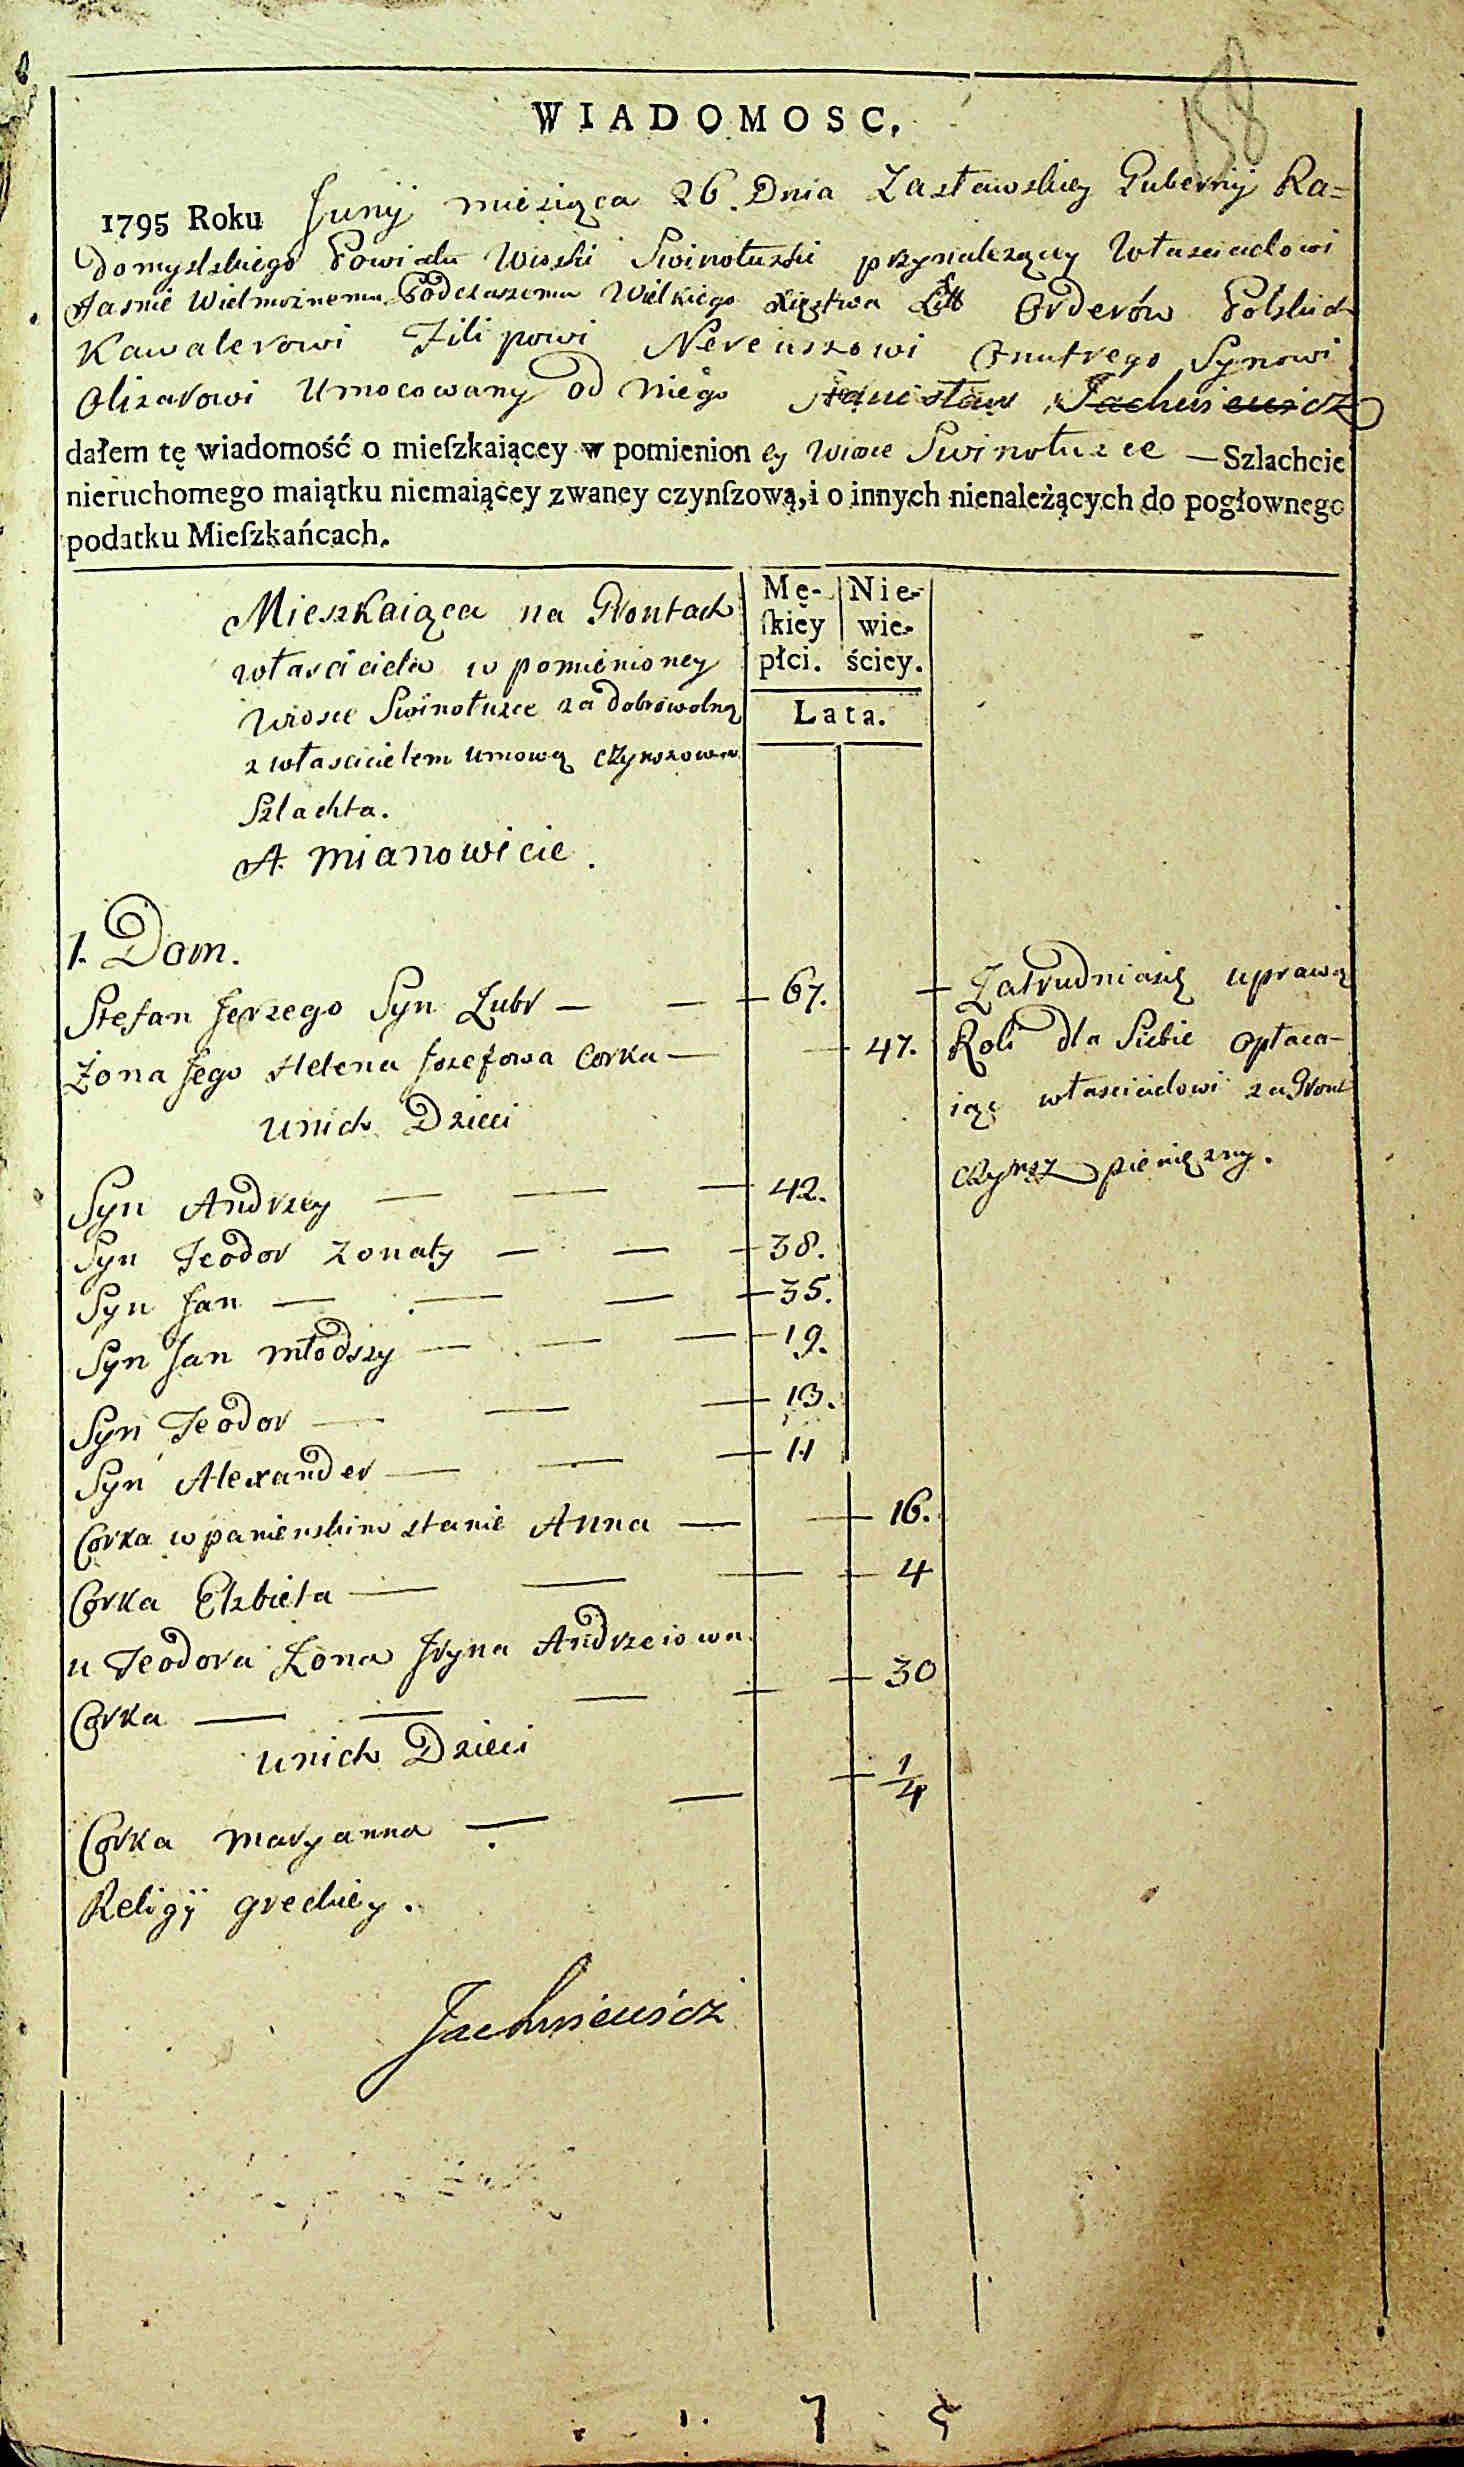 158
WIADOMOSC,
1795 Roku Junij miesiąca 26 Dnia Zasławskiey Gubernij Ra=
domyslskiego Powiatu Wioski Swinołuzki przynalezącey Własciciclowi
Jasnie Wielmoznemu Podczaszemu Wielkiego Xięztwa Litt Orderów Polskich
Kawalerowi Filipowi Nereuszowi Onufrego Synowi
Olizarowi Umocowany od niego Stanisław Jachniewicz
dałem tę wiadomość o mieſzkaiącey w pomienion ey Wiosce Swinołuzce — Szlachcie
nieruchomego maiątku niemaiącey zwaney czynſzową, i o innych nienależących do pogłownego
podatku Mieſzkańcach.
Mieszkaiąca na Grontach
własciciela w pomienioney
Wiosce Swinołuzce za dobrowolną
z włascicielem umową czynszowa
Szlachta.
A mianowicie.
Mę-
ſkiey
płci.
Nie-
wie-
ściey.
Lata.
1. Dom.
Stefan Jerzego Syn Zubr — — — 67.
Żona Jego Helena Jozefowa Corka — — 47.
unich Dzieci
Zatrudniasię uprawą
Roli dla Siebie opłaca-
iąc własciciclowi za Gront
czynsz pieniężny.
Syn Andrzey — — — 42.
Syn Teodor zonaty — — — 38.
Syn Jan — — — — 35.
Syn Jan młodszy — — — 19.
Syn Teodor — — — 13.
Syn Alexander — — — 11
Corka w panienskim stanie Anna — — 16.
Corka Elzbieta — — — — 4
u Teodora Zona Jryna Andrzeiowa
Corka — — — — — 30
unich Dzieci
Corka Maryanna — — — 1/4
Religij greckiey.
Jachniewicz
7 5